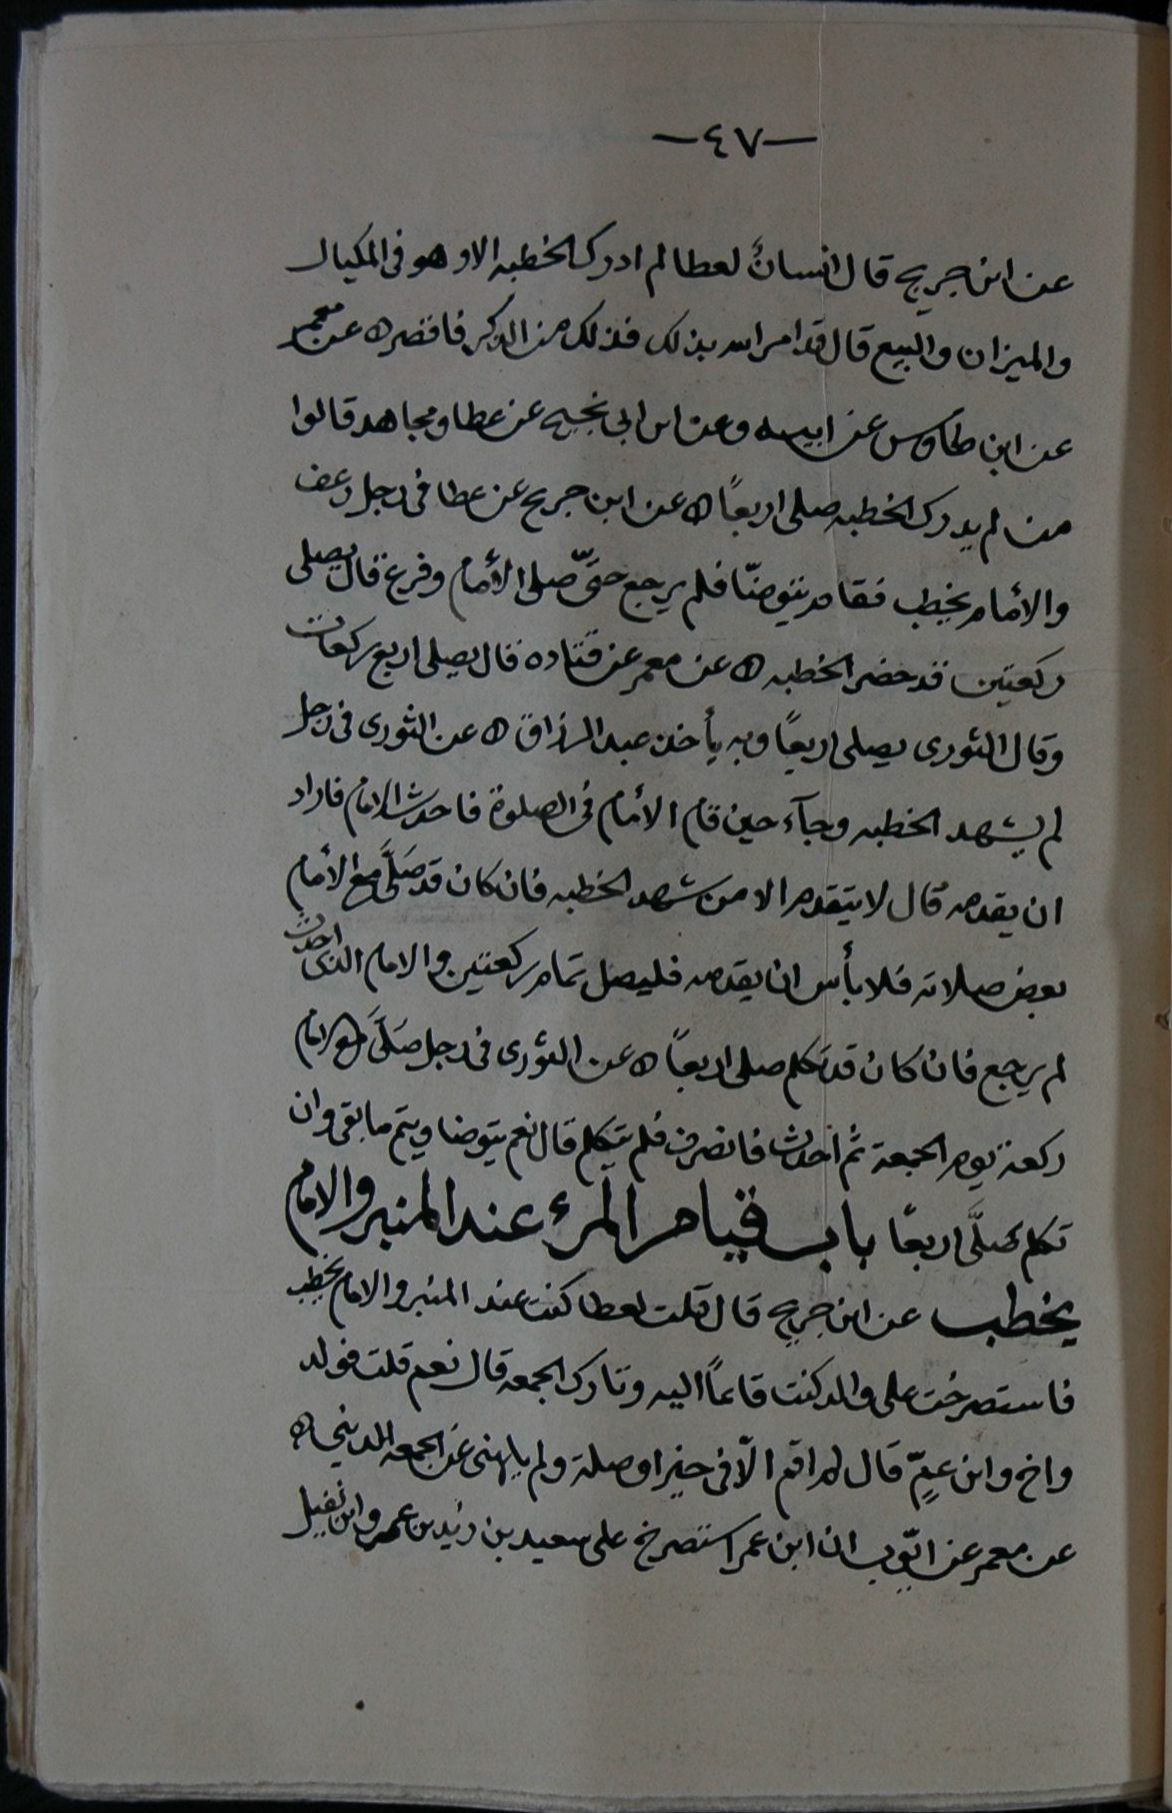 -٤٧-
عن ابن جريج قال انسانً لعطا لم ادرك الخطبه الا وهو فى المكيال
والميزان والبيع قال قد امر الله بذلك فذلك من الذكر فاقصر ه عن معمر
عن ابن طاوس عن ابيه وعن ابن ابى نجيح عن عطا ومجاهد قالوا
من لم يدرك الخطبه صلى اربعًا ه عن ابن جريج عن عطا فى رجل رعف
والأمام يخطب فقام يتوضّا فلم يرجع حتّى صلى الأمام وفرغ قال يصلى
ركعتين قد حضر الخطبه ه عن معمر عن قتاده قال يصلى اربع ركعات
وقال الثورى يصلى اربعًا وبه يأخذ عبد الرزاق ه عن الثورى فى رجل
لم يشهد الخطبه وجآء حين قام الأمام فى الصلوة فاحدث الامام فاراد
ان يقدمه قال لا يتقدم الا من شهد الخطبه فان كان قد صَلَّى مع الأمام
بعض صلاته فلا بأس ان يقدمه فليصل تمام ركعتين والامام الذى احدث
لم يرجع فان كان قد تكلم صلى اربعًا ه عن الثورى فى رجل صَلَّى مع الامام
ركعة يوم الجمعة ثم احدث فانصرف فلم يتكلم قال نعم يتوضا ويتم ما بقى وان
تكلم صلَّى اربعًا باب قيام المرء عند المنبر والامام
يخطب عن ابن جريج قال قلت لعطا كنت عند المنبر والامام يخطب
فاستصرخت على والد كنت قائمًا اليه وتارك الجمعه قال نعم قلت فولد
واخ وابن عمٍّ قال لم اقم الّا فى خير او صلة ولم يلهنى عن الجمعه الدينى ه
عن معمر عن ايّوب ان ابن عمر استصرخ على سعيد بن زيد بن عمرو ابن نفيل